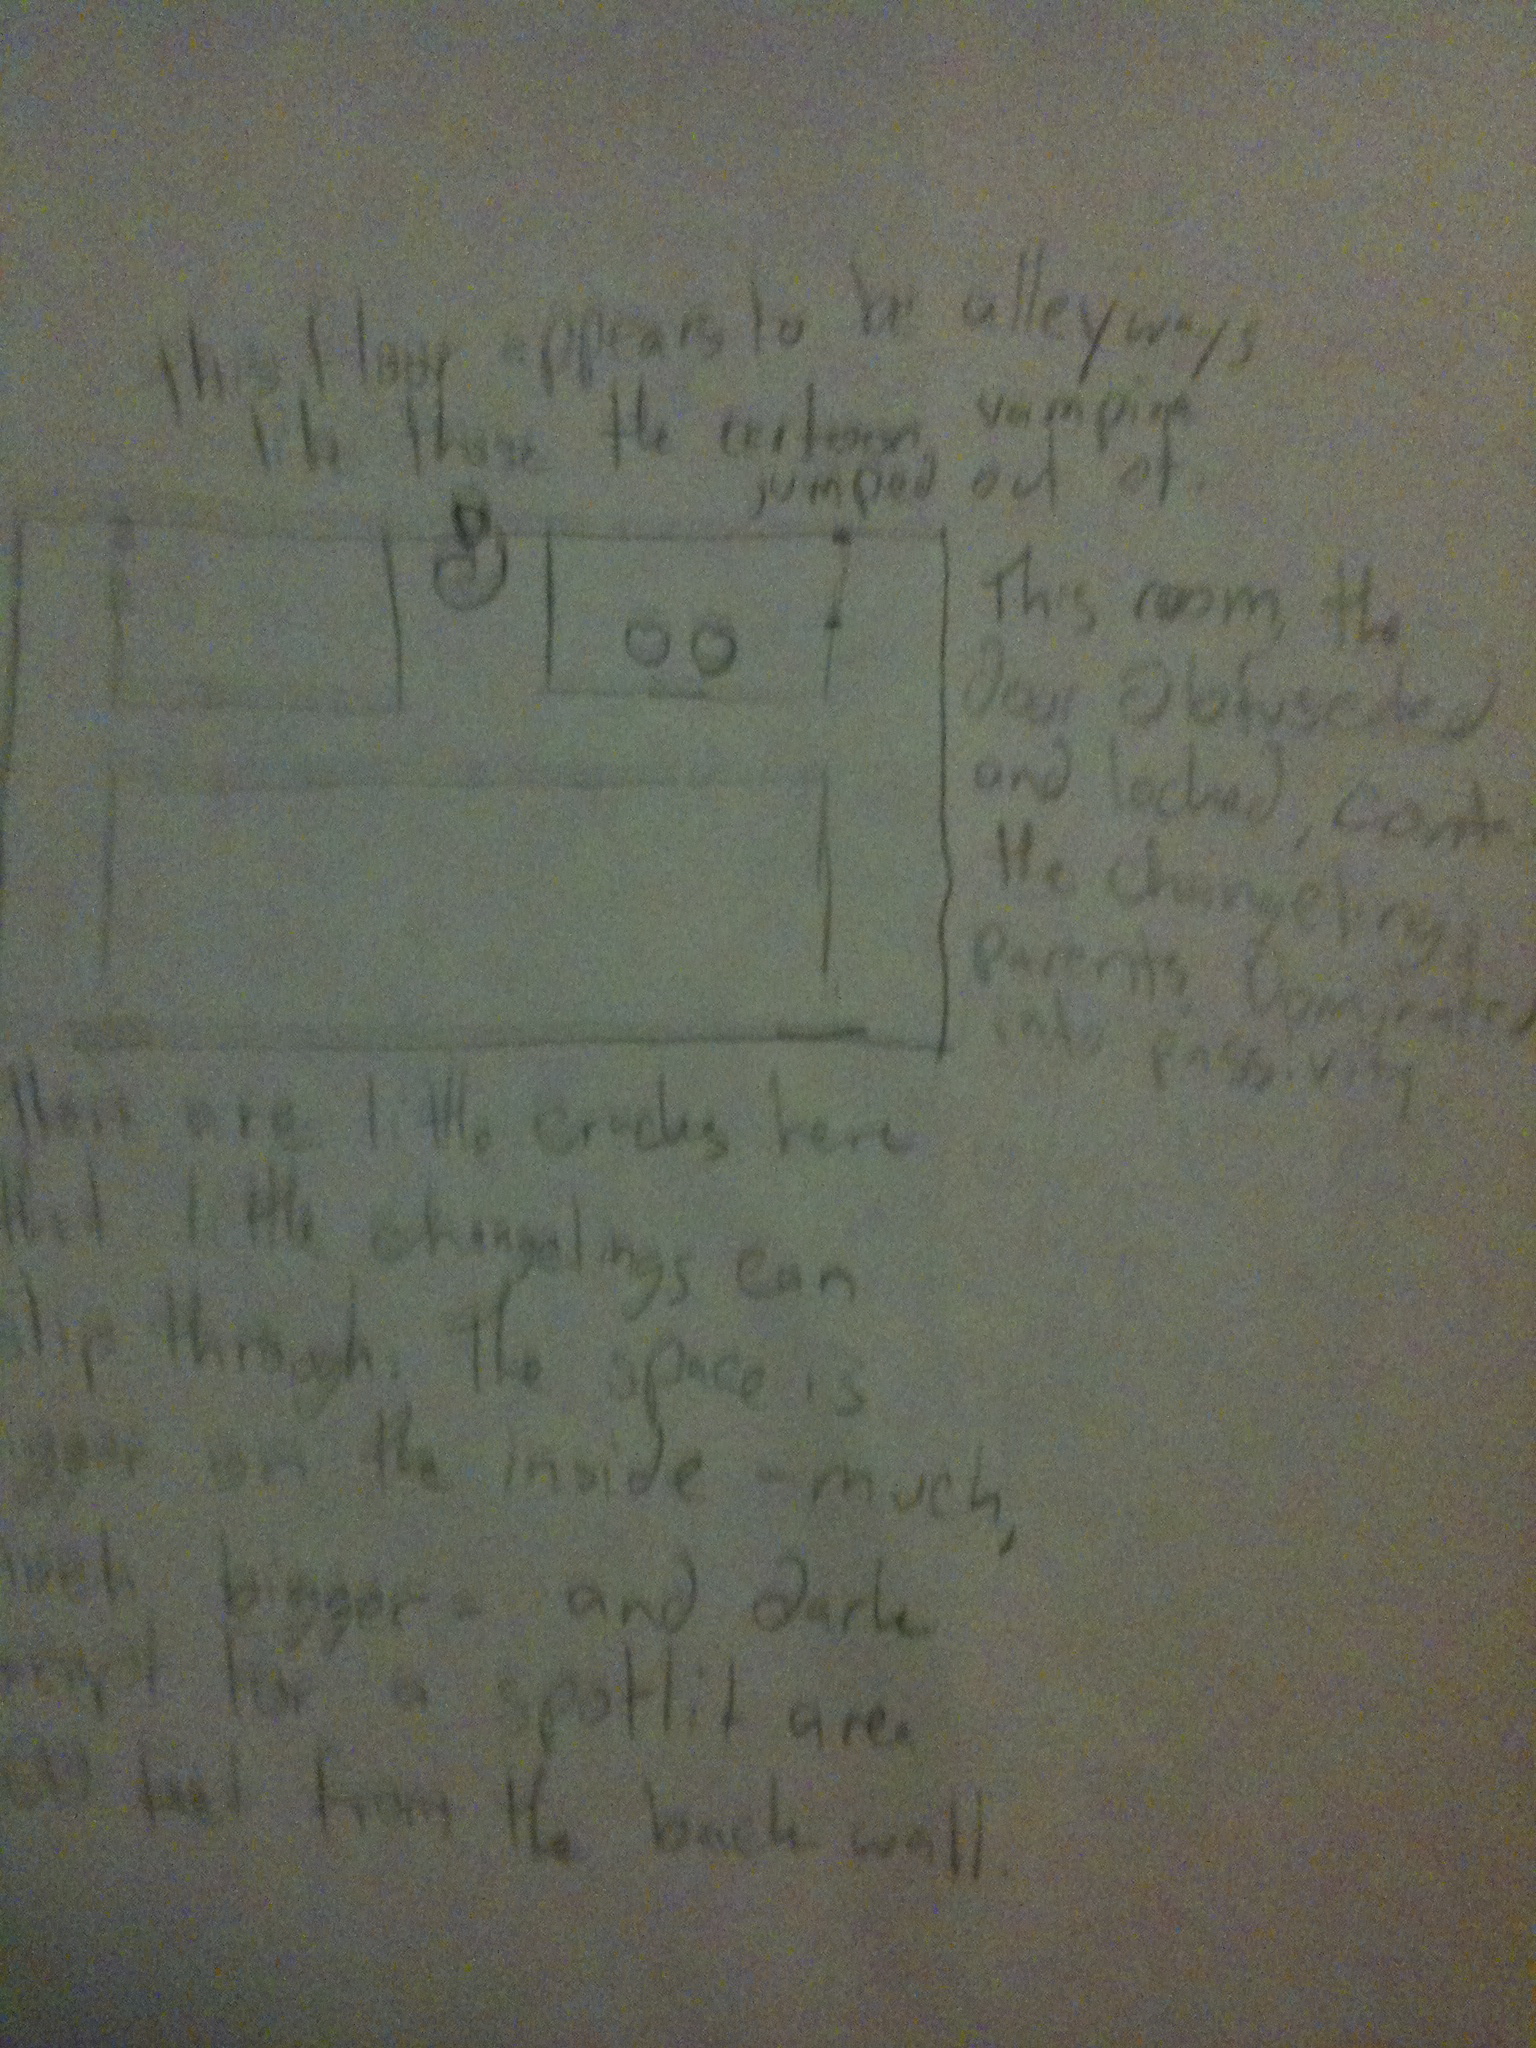 This floor appears to be alleyways
like those the cartoon vampire
jumped out of.
This room, the
door obfuscated
and locked, conta
the changeling's
parents, Dominated
into passivity.
There are little cracks here
that little changelings can
slip through. The space is
igger on the inside - much,
much bigger - and dark
except for a spotlit area
feet from the back wall.